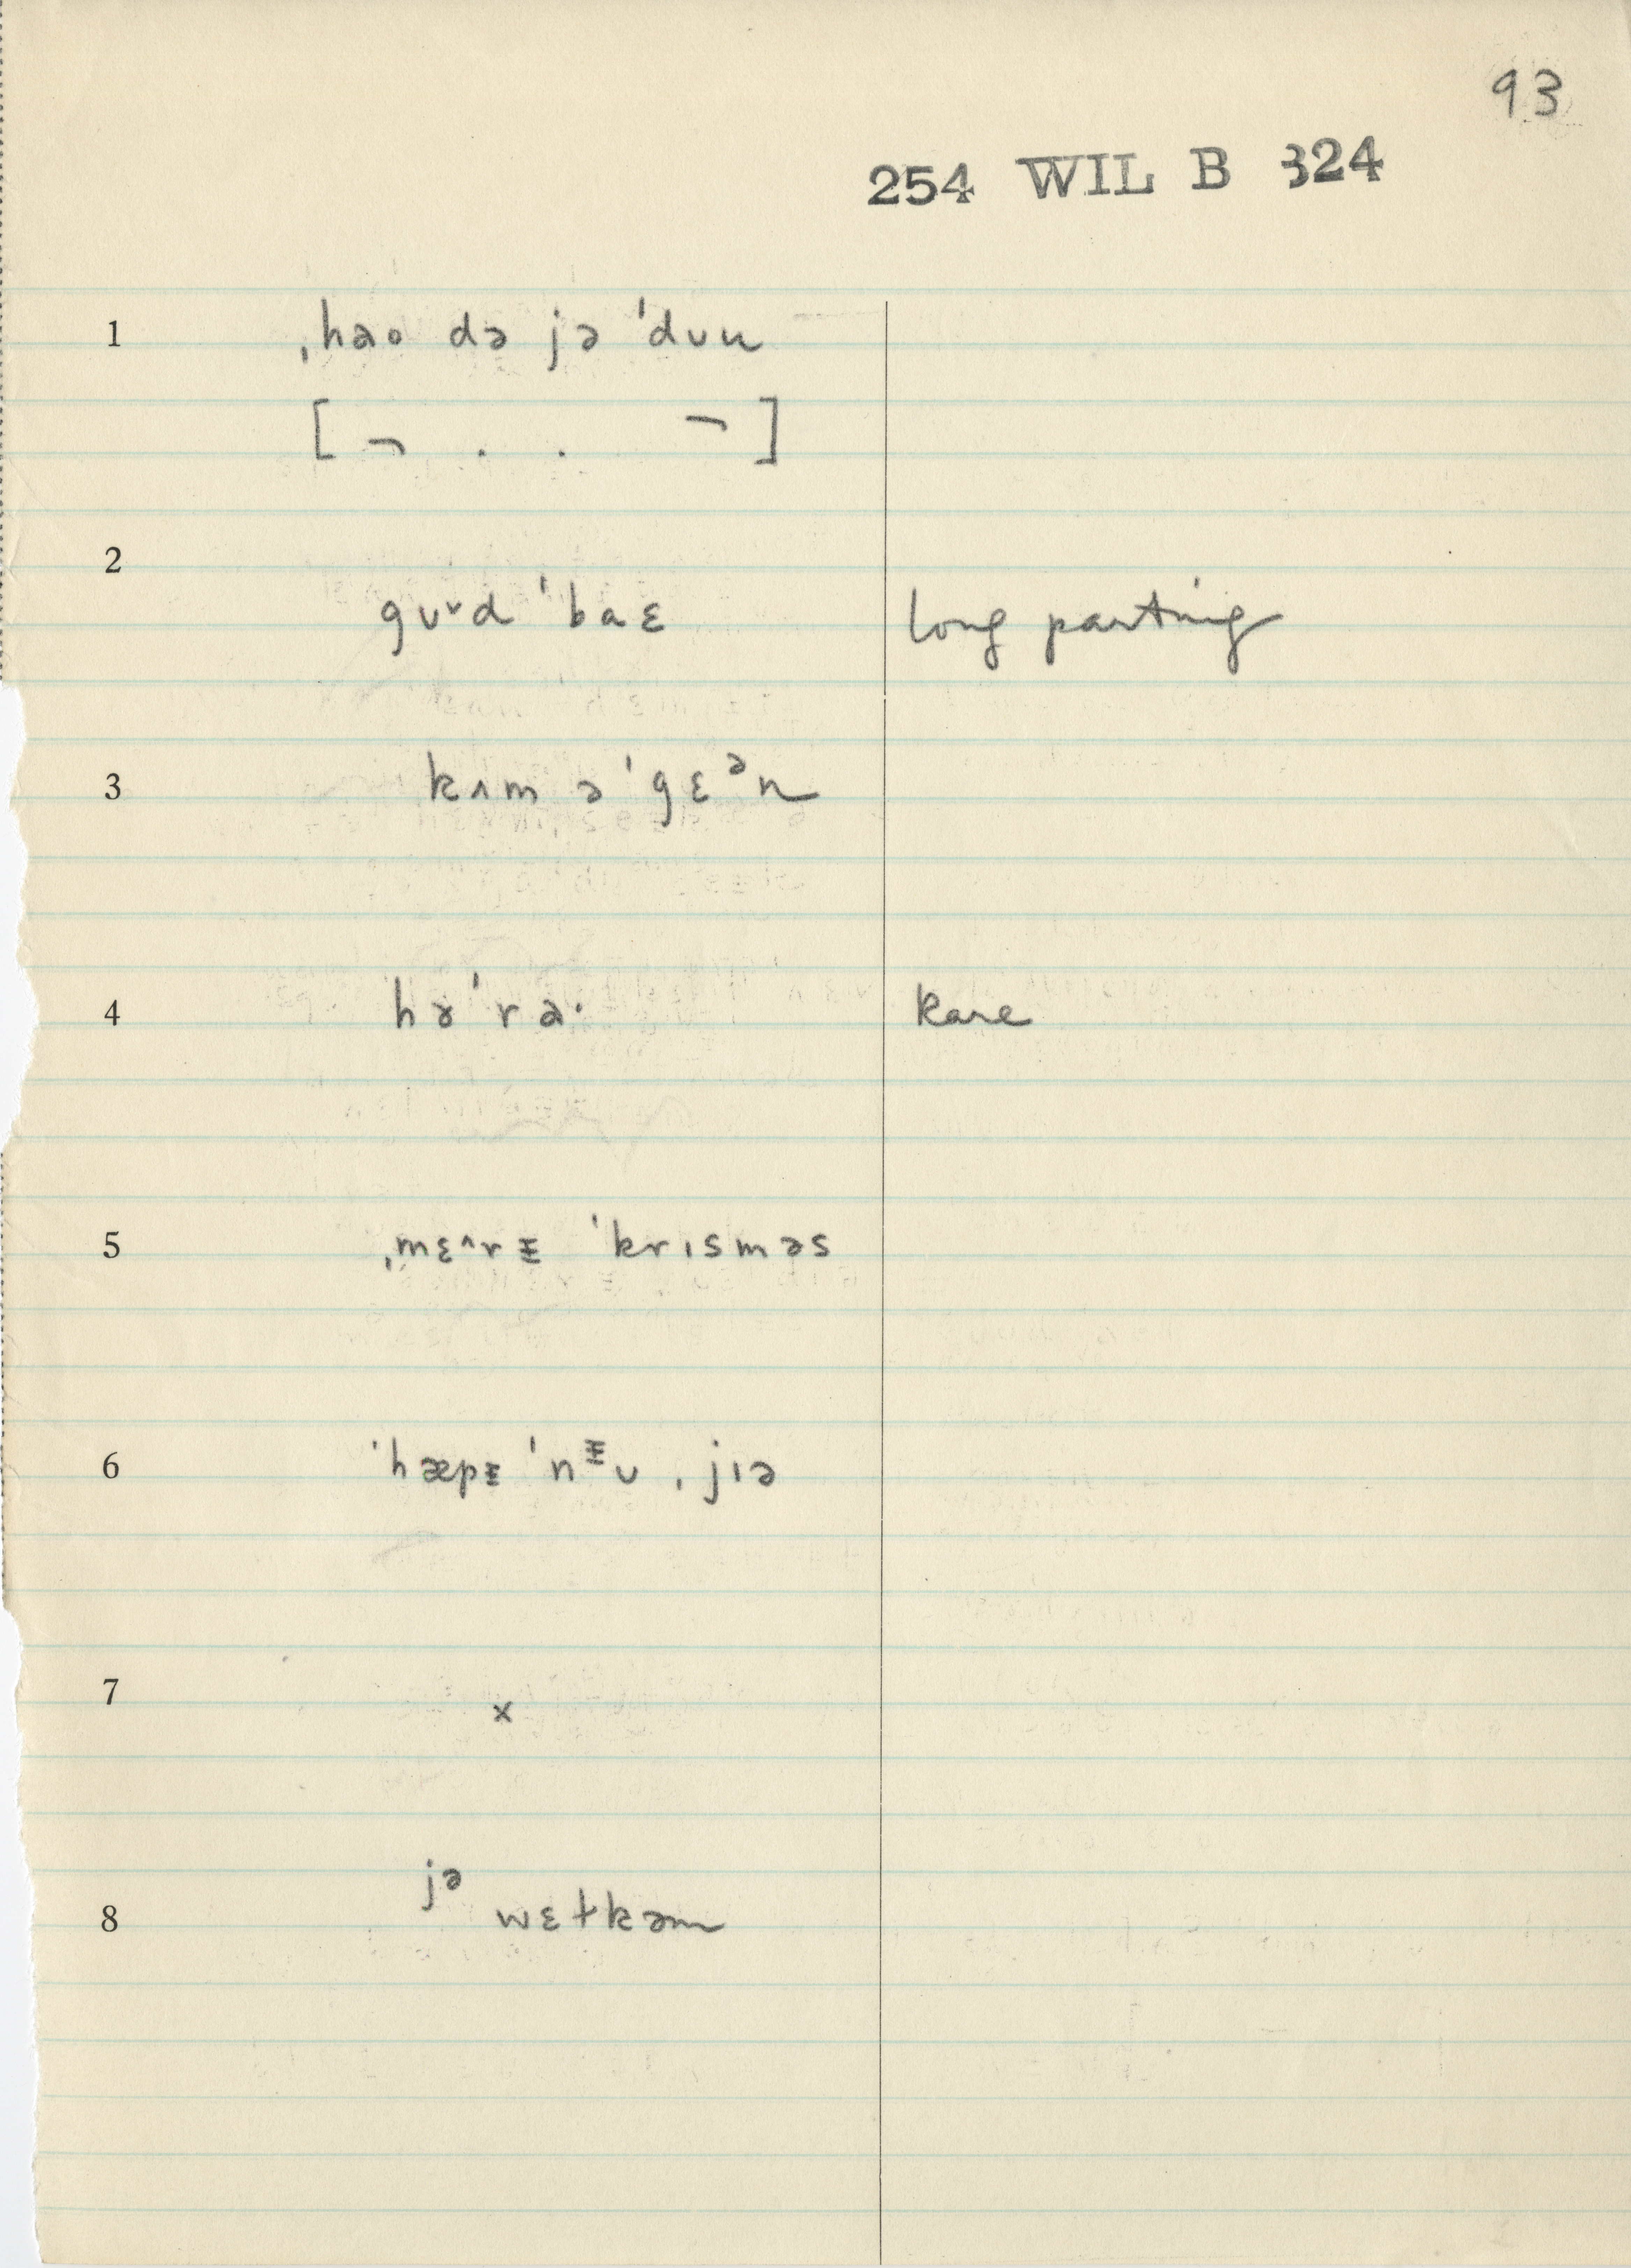 93
254 WIL B 324
1 ˌhao də jə ˈduu
[ ¬ . . ¬ ]
2
gʊᵛd ˈbaɛ long parting
3 kʌm əˈgɛᵊn
4 həˈra· rare
5 ˌmɛ^rᵻ ˈkrɪsməs
6 ˈhæpᵻ ˈnᵻʊ ˌjɪə
7 x
jə
8 wɛɫkəm